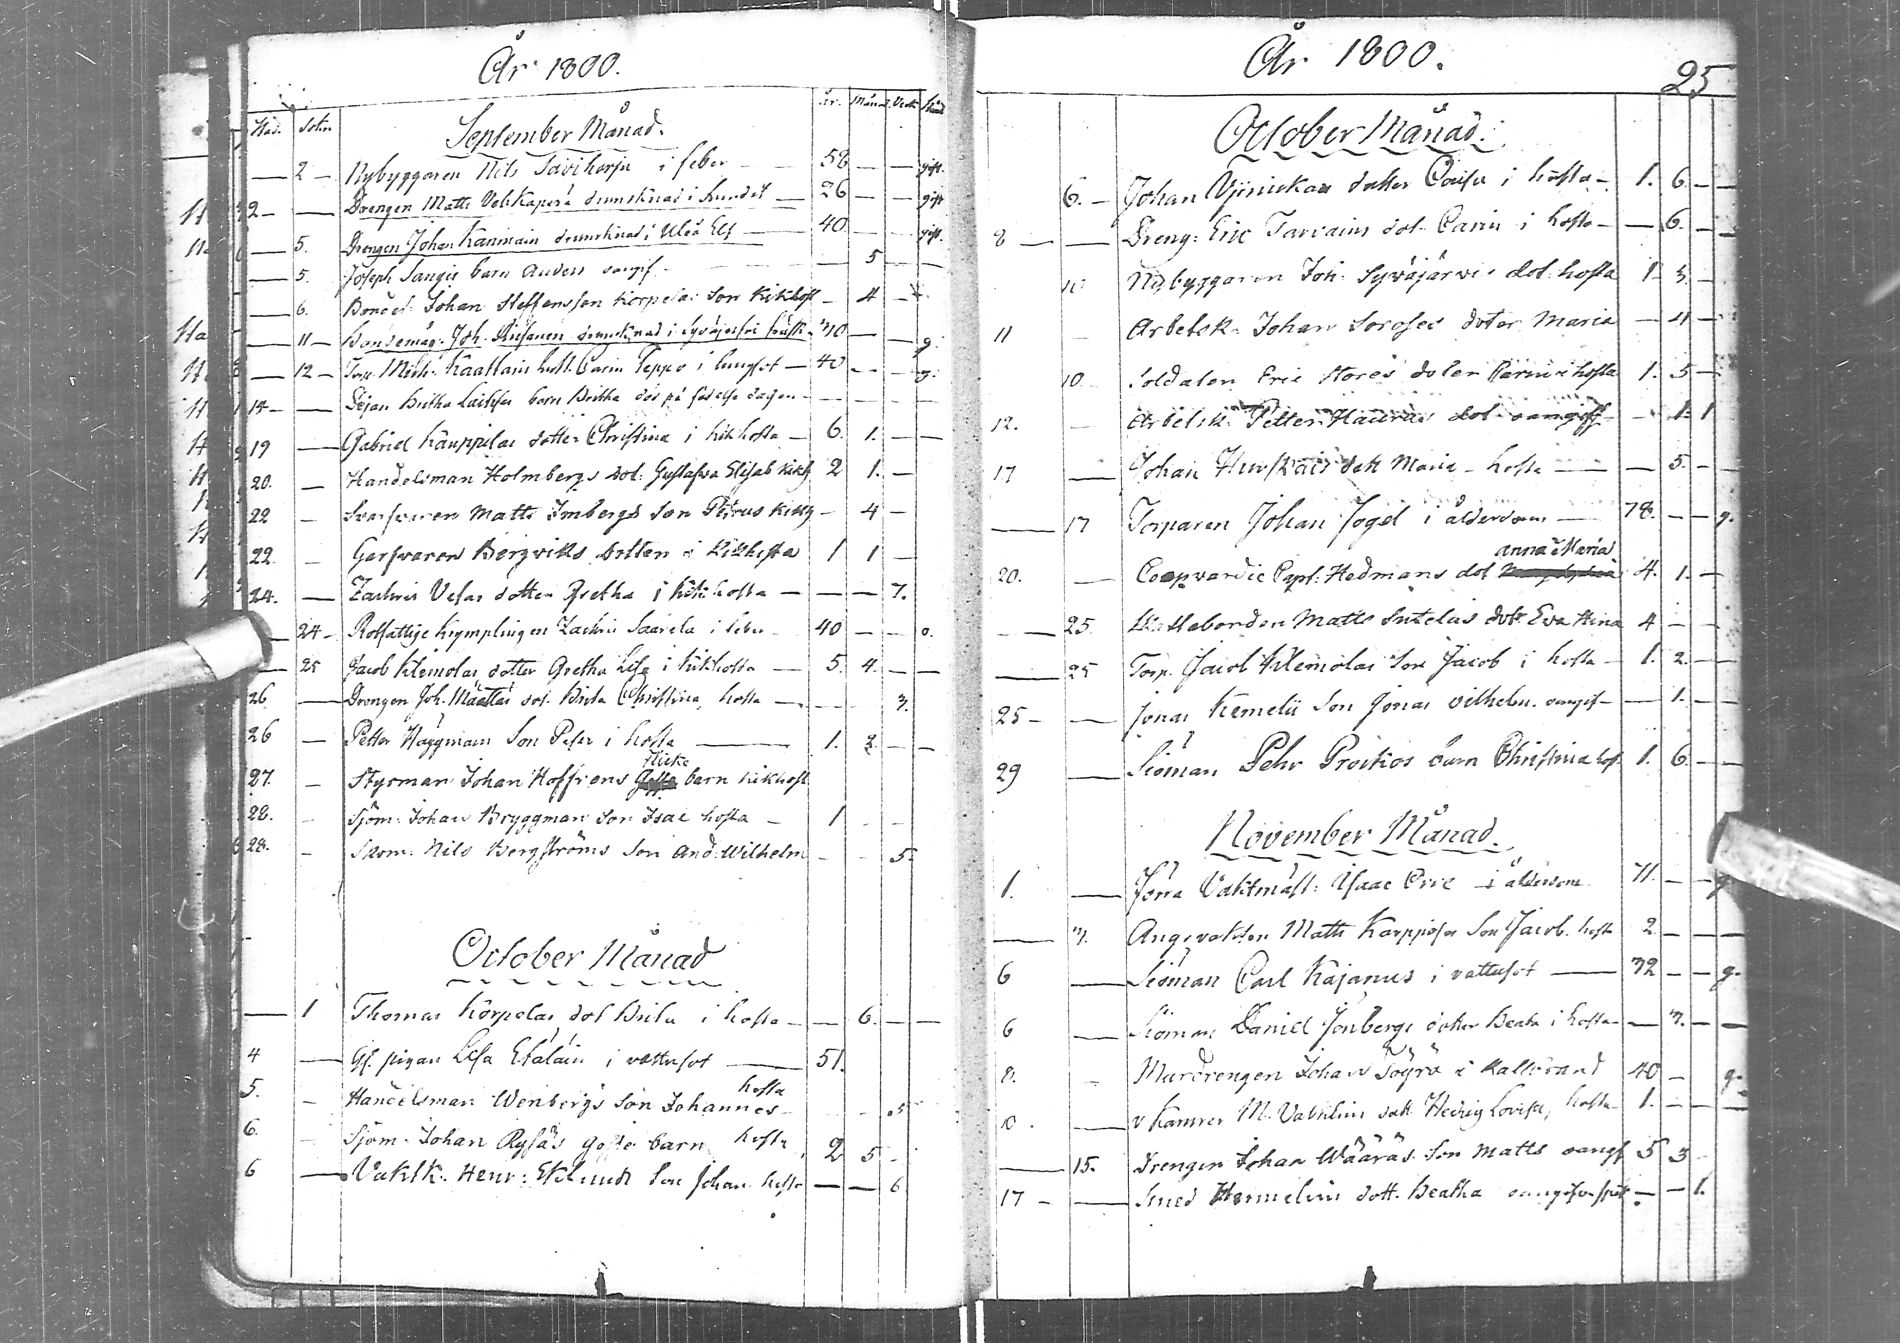 År 1800.
Stad. Sokn År. Månad. Veck. Stånd
September Månad.
2 Nybyggaren Nils Savikorju i feber 58 gift
2 Drengen Matts drunknad i sundet 26 gift
5. Drengen Johan drunknad i Uleå Elf 40 gift
5. Joseph Sangis barn Anders oangif. 5
6. Bonden Johan Steffensson Korpelas Son Kikhost 4
11 Bondemåg. Joh. drunknad i 40 g
12 Torp. Mich. Kaattains hust. Carin Teppo i lungsot 40 g.
14 Britha barn Britha död på födelse dagen
19 Gabriel Kauppilas dotter Christina i kikhosta 6. 1.
20. Handelsman Holmbergs dot. Gustafva Elisab kikh 2 1.
22 Svarfvaren Matts Enbergs Son Petrus kikh 4
22. Garfvaren Bergviks dotter i kikhosta 1 1
24. Zachris Vesas dotter Gretha i kikhosta 7.
24 Rotfattige Krymplingen Zachris Saarela i feber 40 o.
25 Jacob Klemolas dotter Gretha Lisa i kikhosta 5. 4.
26 Drengen Joh. Määttäs dot. Brita Christina, hosta 3.
26 Petter Häggmans Son Peter i hosta 1. 2.
flicke
27. Styrman Johan Hoffrens barn kikhost
28. Sjöm. Johan Bryggman Son Isac hosta 1
28. Nils Bergströms Son And. Wilhelm 5.
October Månad
1 Thomas Korpelas dot Brita i hosta 6.
4 Gf. pigan Lisa Etäläin i vattusot 51.
hosta
5. Handelsman Wenbergs Son Johannes 5
6. Sjöm. Johan Rysäs gosse barn hosta 2 5
6 Vaktk. Henr: Eklunds Son Johan hosta 6
År 1800.
25
October Månad.
6. Johan dotter Caisa i hosta 1. 6.
8 Dreng: Eric Tarvains dot. Carin i hosta 6.
10 Nybyggaren Joh. Syväjärvis dot. hosta 1 3.
11 Arbetsk. Johan Sorosес doter Maria 4
10 Soldaten Eric Stores doter Carin i hosta 1. 5
12. Arbetsk. Petter dot oangiff 1. 1
17 Johan Hurskais dott Maria hosta 5.
17 Torparen Johan Jogel i ålderdom 78. g.
Anna Maria
20. Coopvardie Capt: Hedmans dot 4. 1.
25. Matts Sutelas dotr Eva Stina 4
25 Torp. Jacob Klemolas Son Jacob i hosta 1. 2.
25 Jonas Kemelii Son Jonas Vilhelm. oangif 1.
29 Siöman Pehr barn Christina hos. 1. 6.
November Månad.
1. Förra Vaktmäst: Isaac i ålderdom 71. g
7. Matts Karppisa Son Jacob. host 2
6 Siöman Carl Kajanus i vattusot 72 g.
6 Siöman Daniel Jonbergs doter Beata i hosta 7.
8. Murdrengen Johan Töyrä i kallbrand 40 g.
10. v Kamrer M. dott Hedvig Lovisa, hosta 1.
15. Drengen Johan Wääräs Son Matts oangf 5 3
17 Smed Hermelins dott. Beatha 1.